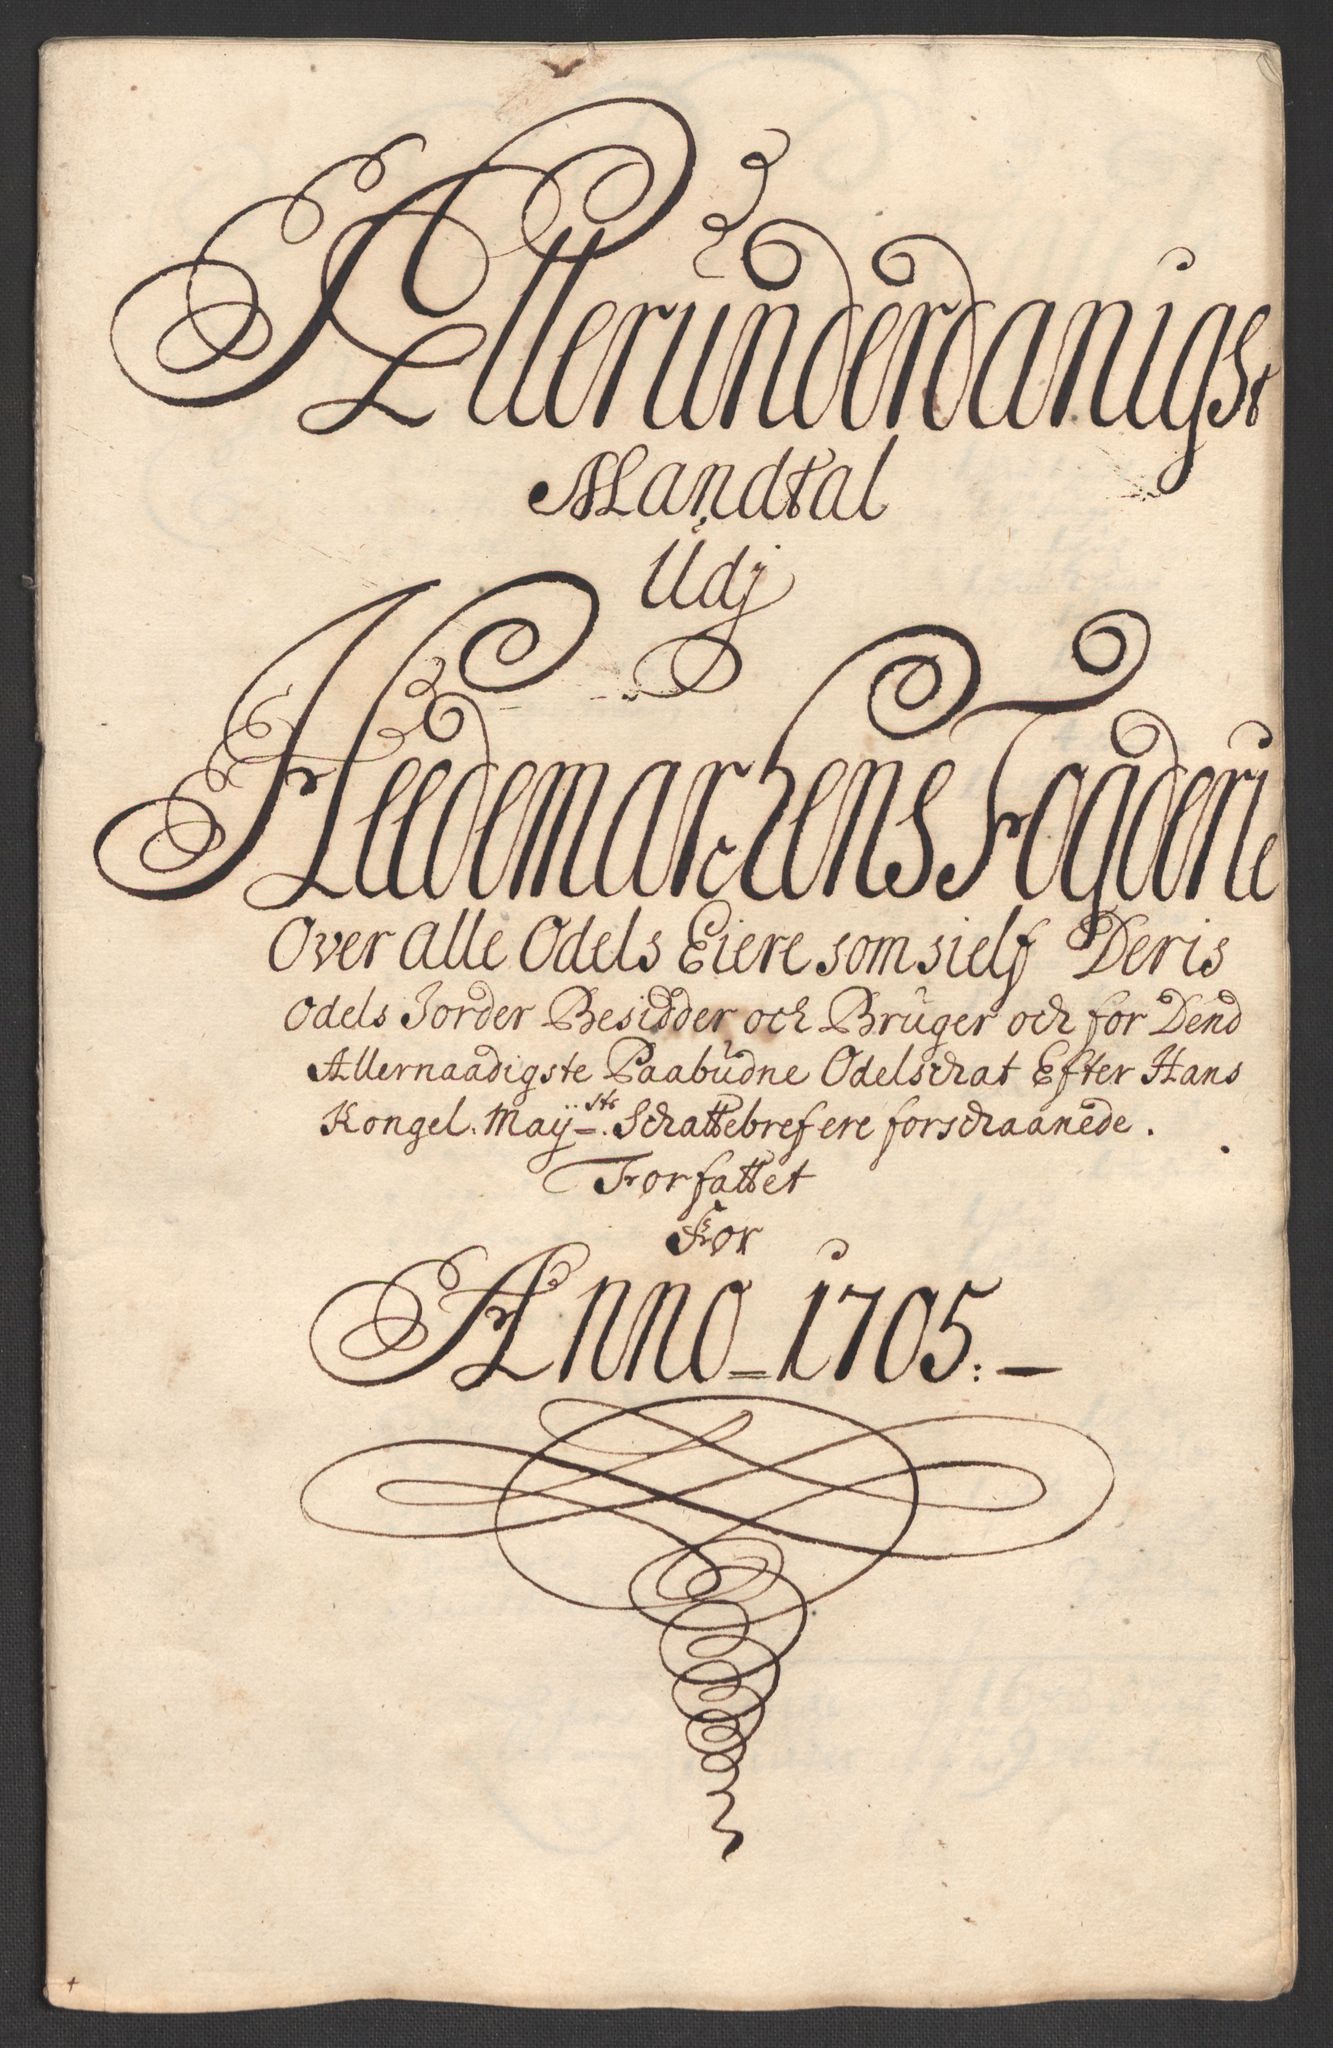 Allerunderdanigst
Mandtal
Udj
Heedemarchens Fogderie
Over alle Odels Eiere som sielf Deris
Odels Jorder Besidder och Brúger och for Dend
Allernaadigste Paabúdne Odelschat Efter Hans
Kongel. Maÿ:sts Schattebref ere forschaanede.
Forfattet
For
Anno 1705.